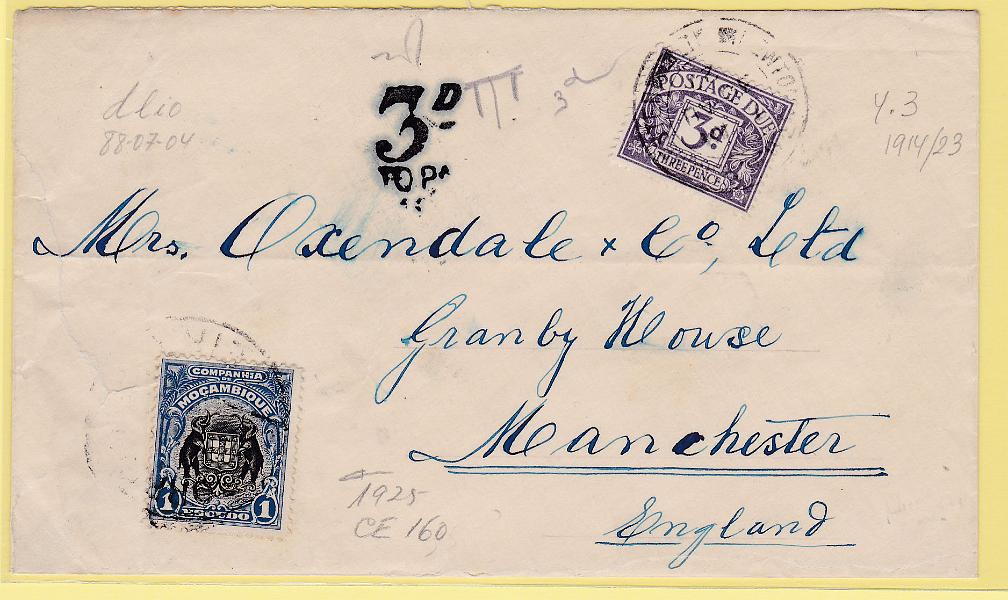 dlio
88-07-04
3D
TO PA
3d
POSTAGE DUE
3d.
THREE PENCE
Y.3
1914/23
Mrs. Oxendale & Co, Ltd
Granby House
Manchester
England
COMPANHIA
DE
MOÇAMBIQUE
1 ESCUDO 1
1925
CE 160